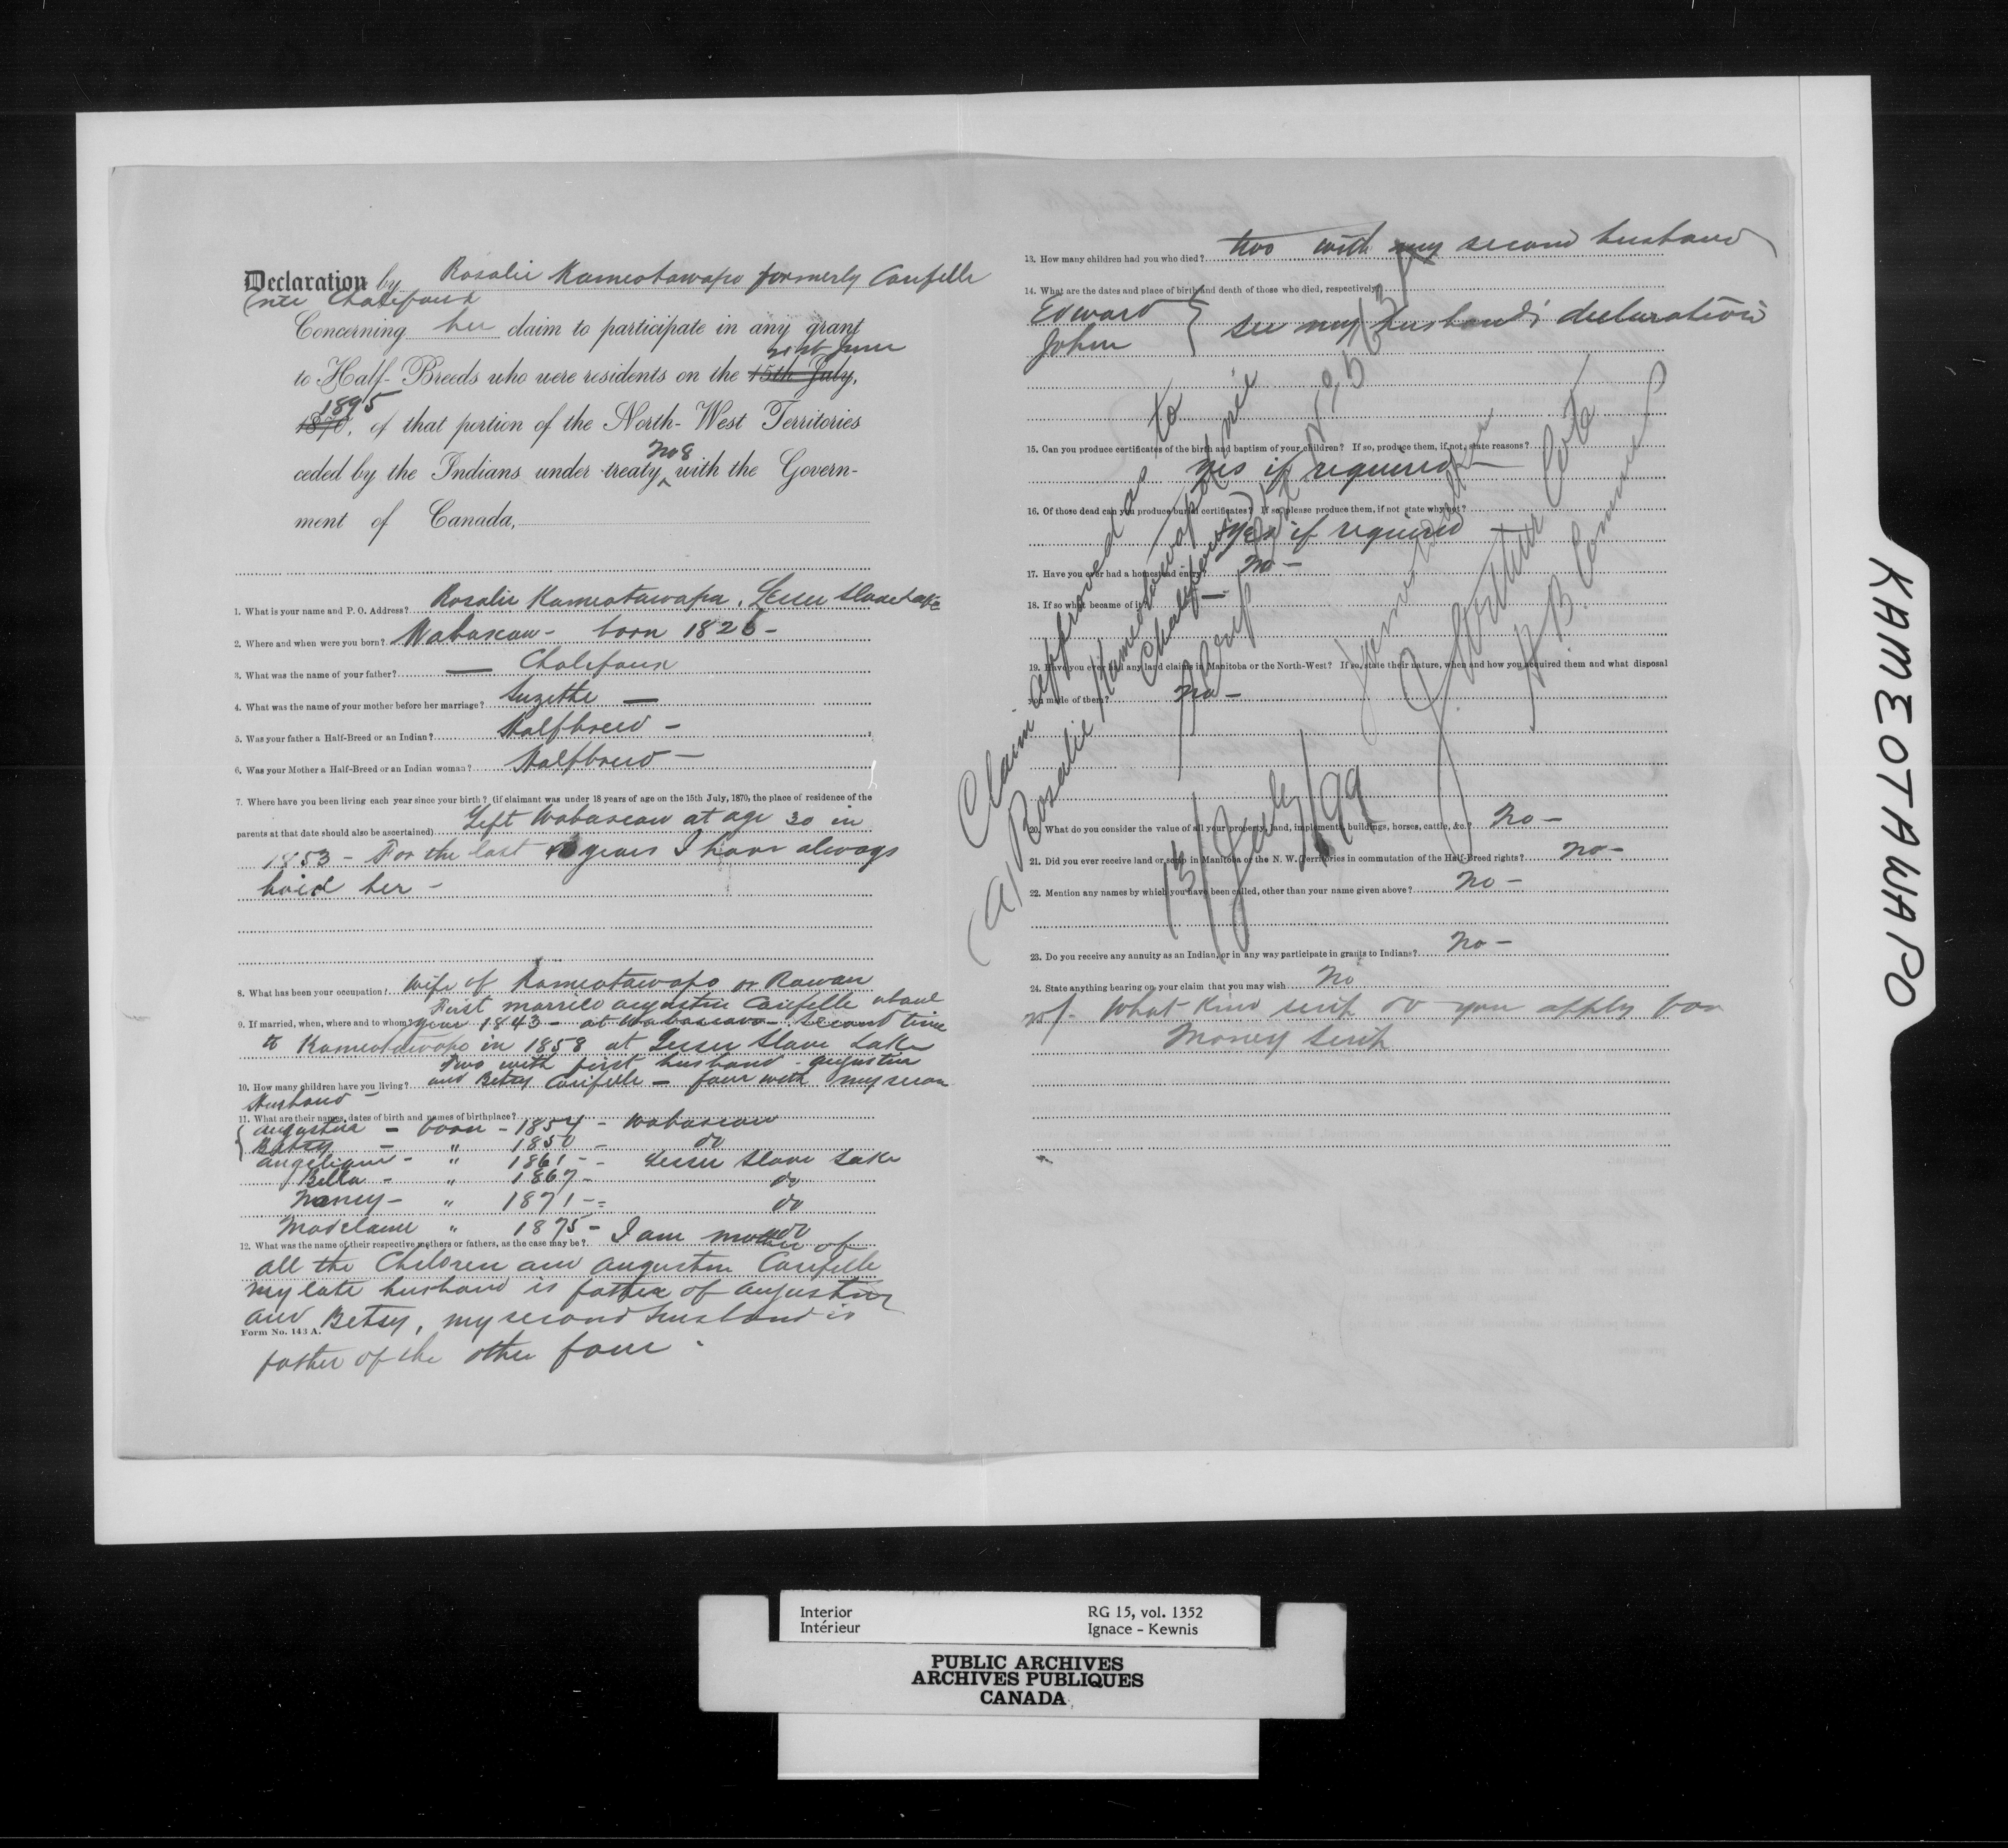 Declaration by Rosalie Kameotawapo formerly Carifelle
(née Chalifoux
Concerning her claim to participate in any grant
21st June
to Half-Breeds who were residents on the 15th July,
1895
1870, of that portion of the North-West Territories
No 8
ceded by the Indians under treaty with the Govern-
ment of Canada,
1. What is your name and P. O. Address? Rosalie Kameotawapo, Lesser Slave Lake
2. Where and when were you born? Wabascaw - born 1826 -
3. What was the name of your father? — Chalifoux
4. What was the name of your mother before her marriage? Suzette —
5. Was your father a Half-Breed or an Indian? Halfbreed -
6. Was your Mother a Half-Breed or an Indian woman? Halfbreed -
7. Where have you been living each year since your birth? (if claimant was under 18 years of age on the 15th July, 1870, the place of residence of the
parents at that date should also be ascertained) Left Wabascaw at age 30 in
1853 - For the last years I have always
her -
8. What has been your occupation? Wife of Kameotawapo or Rowan
First married Augustin Carifelle about
9. If married, when, where and to whom? year 1843 - at Wabascaw - Second time
to Kameotawapo in 1858 at Lesser Slave Lake
Two with first husband - Augustin
10. How many children have you living? and Betsy Carifelle - four with my second
Husband -
11. What are their names, dates of birth and names of birthplace?
Augustin - born - 1854 - Wabascaw
Betsy - " 1850 - do
Angelique - " 1861 - - Lesser Slave Lake
Bella - " 1867 - do
Nancy - " 1871 - - do
Madelaine " 1875 - do
12. What was the name of their respective mothers or fathers, as the case may be? I am mother of
all the Children and Augustin Carifelle
my late husband is father of Augustin
and Betsy, my second husband is
Form No. 143 A.
father of the other four -
13. How many children had you who died? two with my second husband
14. What are the dates and place of birth and death of those who died, respectively?
Edward } see my husband's declaration
John
15. Can you produce certificates of the birth and baptism of your children? If so, produce them, if not, state reasons?
yes if required -
16. Of those dead can you produce burial certificates? If so, please produce them, if not state why not?
yes if required -
17. Have you ever had a homestead entry? No -
18. If so what became of it? —
19. Have you ever had any land claims in Manitoba or the North-West? If so, state their nature, when and how you acquired them and what disposal
you made of them? No -
20. What do you consider the value of all your property, land, implements, buildings, horses, cattle, &c.? No -
21. Did you ever receive land or scrip in Manitoba or the N. W. Territories in commutation of the Half-Breed rights? No -
22. Mention any names by which you have been called, other than your name given above? No -
23. Do you receive any annuity as an Indian, or in any way participate in grants to Indians? No -
24. State anything bearing on your claim that you may wish No
25/- What kind scrip do you apply for
Money Scrip
Claim approved as to
(a) Rosalie Kameotawapo née
Chalifoux
15/July/99
J. Arthur Coté
KAMEOTAWAPO
Interior
Intérieur
RG 15, vol. 1352
Ignace - Kewnis
PUBLIC ARCHIVES
ARCHIVES PUBLIQUES
CANADA